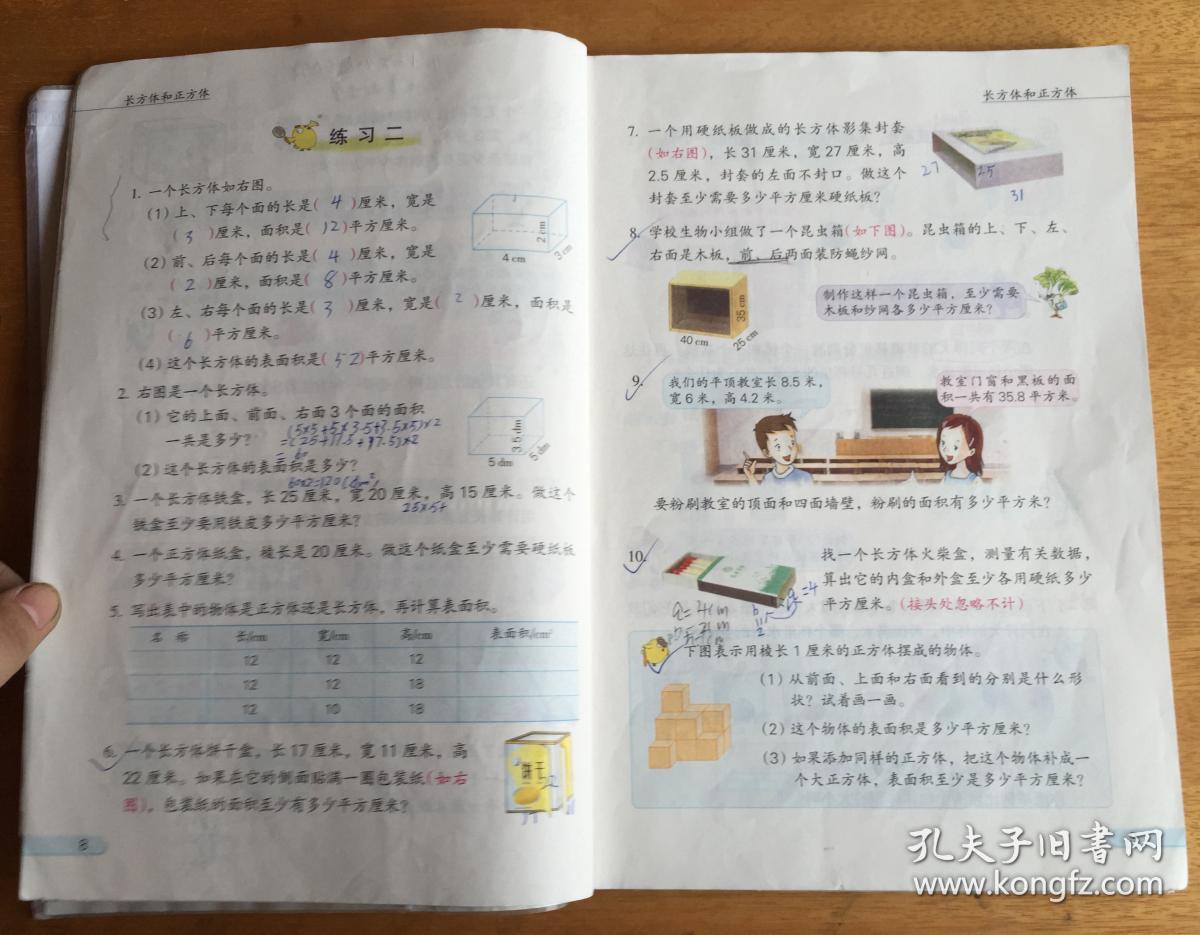 长方体和正方体
练习二
1. 一个长方体如右图。
(1) 上、下每个面的长是( 4 )厘米，宽是
( 3 )厘米，面积是( 12 )平方厘米。
(2) 前、后每个面的长是( 4 )厘米，宽是
( 2 )厘米，面积是( 8 )平方厘米。
(3) 左、右每个面的长是( 3 )厘米，宽是( 2 )厘米，面积是
( 6 )平方厘米。
(4) 这个长方体的表面积是( 52 )平方厘米。
4 cm
3 cm
2 cm
2. 右图是一个长方体。
(1) 它的上面、前面、右面 3 个面的面积
一共是多少？
(5×5+5×3.5+3.5×5)×2
=(25+17.5+17.5)×2
= 60
(2) 这个长方体的表面积是多少？
60×2=120(dm²)
5 dm
5 dm
3.5 dm
3. 一个长方体铁盒，长 25 厘米，宽 20 厘米，高 15 厘米。做这个
铁盒至少要用铁皮多少平方厘米？
25×5+
4. 一个正方体纸盒，棱长是 20 厘米。做这个纸盒至少需要硬纸板
多少平方厘米？
5. 写出表中的物体是正方体还是长方体，再计算表面积。
名 称 长/cm 宽/cm 高/cm 表面积/cm²
12 12 12
12 12 18
12 10 18
6. 一个长方体饼干盒，长 17 厘米，宽 11 厘米，高
22 厘米。如果在它的侧面贴满一圈包装纸(如右
图)，包装纸的面积至少有多少平方厘米？
饼干
8
长方体和正方体
7. 一个用硬纸板做成的长方体影集封套
(如右图)，长 31 厘米，宽 27 厘米，高
2.5 厘米，封套的左面不封口。做这个
封套至少需要多少平方厘米硬纸板？
27
25
31
8. 学校生物小组做了一个昆虫箱(如下图)。昆虫箱的上、下、左、
右面是木板，前、后两面装防蝇纱网。
40 cm
25 cm
35 cm
制作这样一个昆虫箱，至少需要
木板和纱网各多少平方厘米？
9. 我们的平顶教室长 8.5 米，
宽 6 米，高 4.2 米。
教室门窗和黑板的面
积一共有 35.8 平方米。
要粉刷教室的顶面和四面墙壁，粉刷的面积有多少平方米？
10. 找一个长方体火柴盒，测量有关数据，
算出它的内盒和外盒至少各用硬纸多少
平方厘米。(接头处忽略不计)
下图表示用棱长 1 厘米的正方体摆成的物体。
(1) 从前面、上面和右面看到的分别是什么形
状？试着画一画。
(2) 这个物体的表面积是多少平方厘米？
(3) 如果添加同样的正方体，把这个物体补成一
个大正方体，表面积至少是多少平方厘米？
孔夫子旧书网
www.kongfz.com